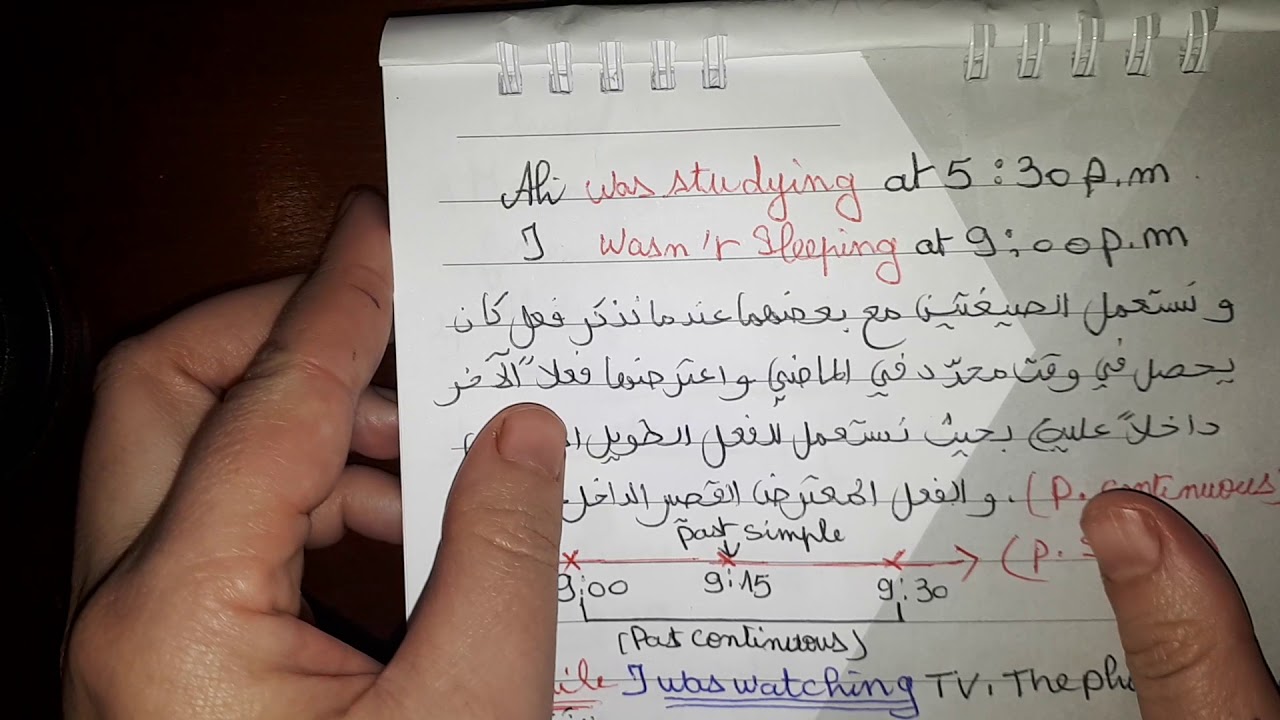 Ali was studying at 5:30 p.m
I wasn't sleeping at 9:00 p.m
ونستعمل الصيغتين مع بعضهما عندما نذكر فعل كان
يحصل في وقت محدّد في الماضي واعترضها فعلاً آلآخر
داخلاً عليه بحيث نستعمل للفعل الطويل
(p. continuous). والفعل المعترض القصير الداخل
past simple
(p.
9:00 9:15 9:30
(Past continuous)
I was watching TV. The